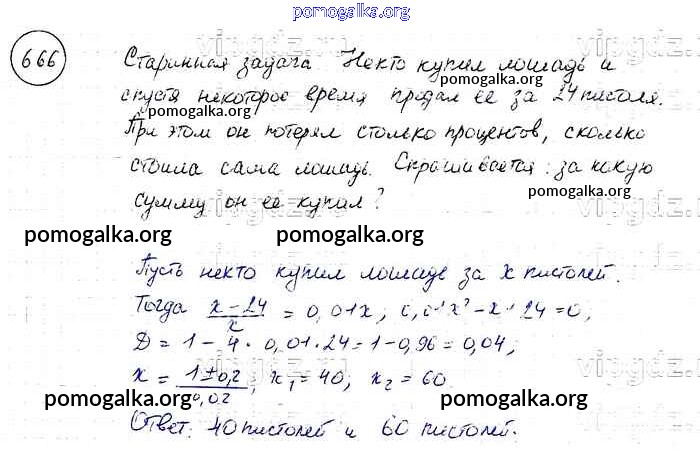 pomogalka.org
666 Старинная задача Некто купил лошадь и
pomogalka.org
спустя некоторое время продал ее за 24 пистоля.
При этом он потерял столько процентов, сколько
стоила сама лошадь. Спрашивается: за какую
pomogalka.org
сумму он ее купил?
pomogalka.org pomogalka.org
Пусть некто купил лошадь за x пистолей.
Тогда (x-24)/x = 0,01x; 0,01x²-x+24=0;
D = 1-4·0,01·24=1-0,96=0,04;
x = (1±0,2)/0,02; x₁=40, x₂=60.
pomogalka.org pomogalka.org
Ответ: 40 пистолей и 60 пистолей.